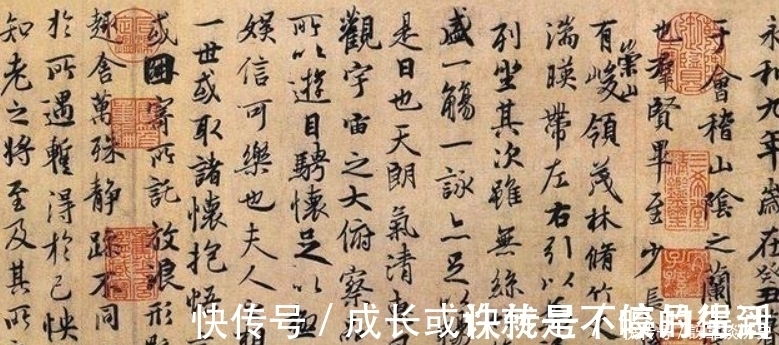 永和九年歲在癸丑
于會稽山陰之蘭
也羣賢畢至少長
有崇山峻領茂林脩竹
湍暎帶左右引以
列坐其次雖無絲
盛一觴一詠亦足
是日也天朗氣清
觀宇宙之大俯察
所以遊目騁懷足以
娛信可樂也夫人
一世或取諸懷抱悟
或因寄所託放浪形
趣舍萬殊靜躁不同
於所遇暫得於己怏
知老之將至及其所
快传号 / 成长或